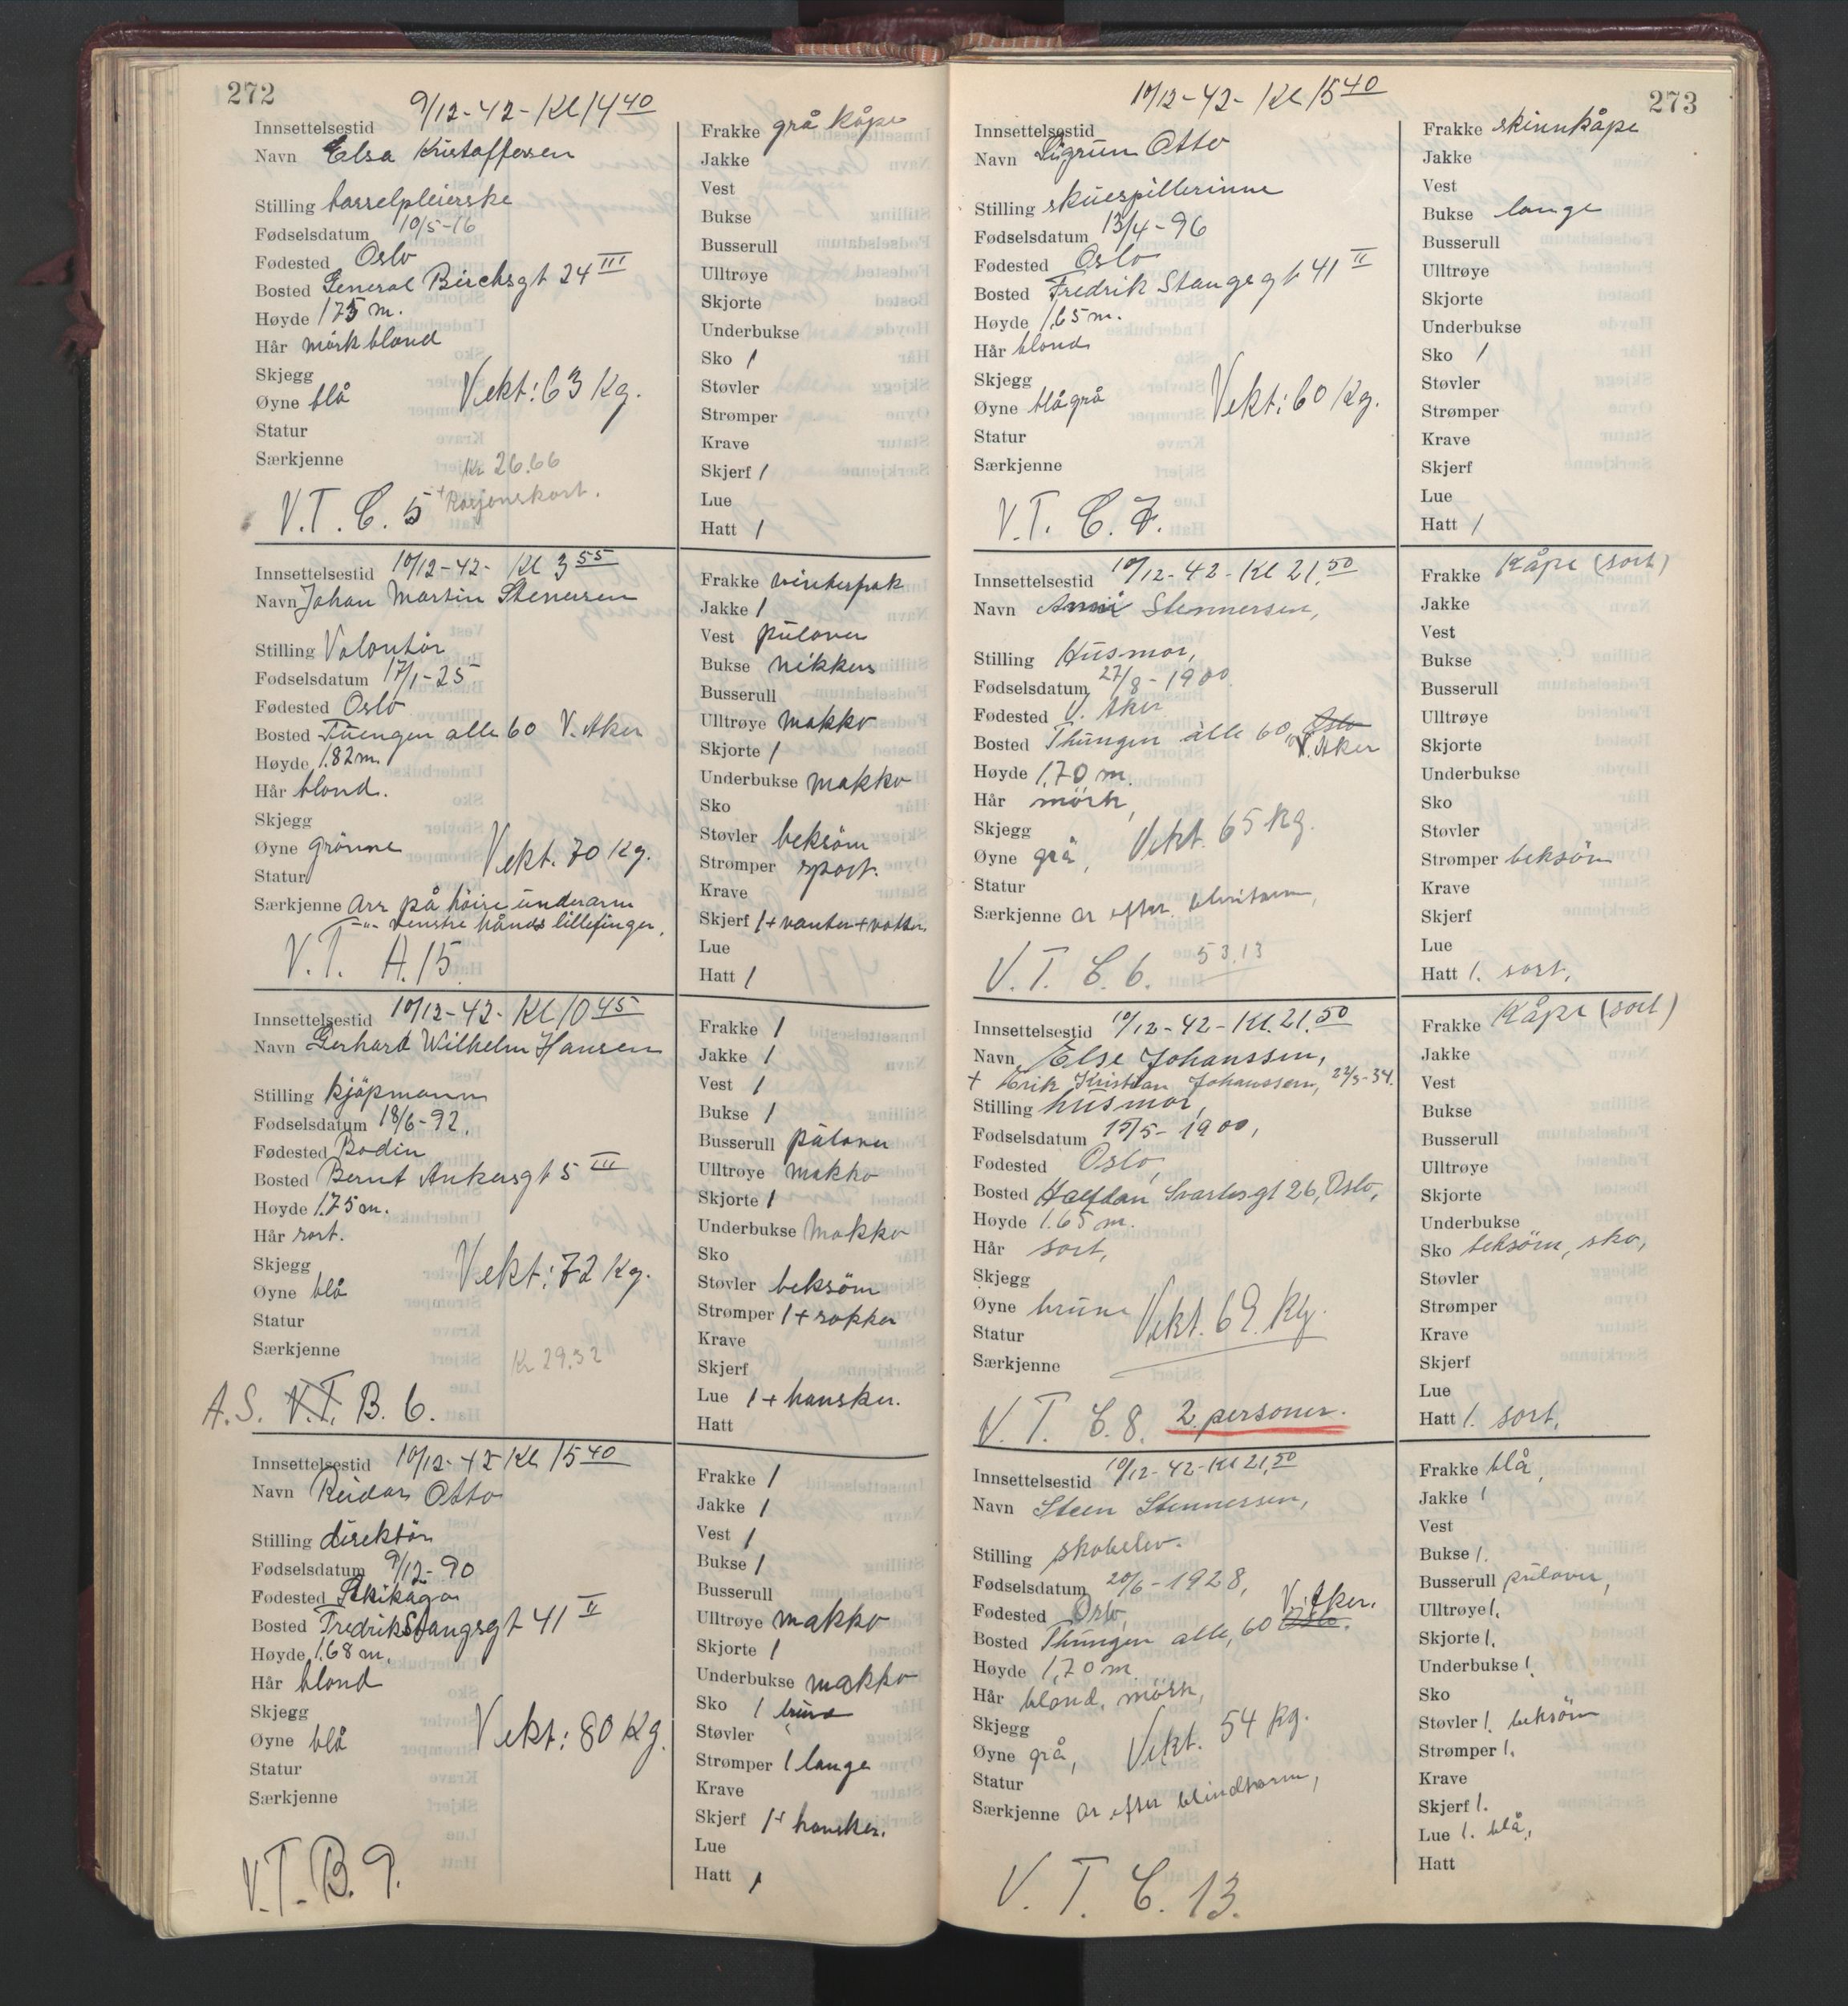 272
Innsettelsestid 9/12-42- Kl 14 40
Navn Elsa Kristoffersen
Stilling barselpleierske
Fødselsdatum 10/5-16
Fødested Oslo
Bosted General Birchsgt 24 III
Høyde 175 m.
Hår mörk blond
Skjegg
Øyne blå Vekt: 63 Kg.
Statur
Særkjenne
Kr. 26.66
V.T. C. 5 + Rasjonskort.
Frakke grå kåpe
Jakke
Vest
Bukse
Busserull
Ulltrøye
Skjorte
Underbukse
Sko 1
Støvler
Strømper
Krave
Skjerf 1
Lue
Hatt 1
Innsettelsestid 10/12-42- Kl 3 55
Navn Johan Martin Stenersen
Stilling Volontör
Fødselsdatum 17/1-25
Fødested Oslo
Bosted Tuengen alle 60 V. Aker
Høyde 1.82 m.
Hår blond.
Skjegg
Øyne grönne Vekt. 70 Kg.
Statur
Særkjenne Arr på höire underarm
-"- venstre hånds lillefinger.
V.T. A.15
Frakke vinterfrak
Jakke 1
Vest pulover
Bukse nikkers
Busserull
Ulltrøye makko
Skjorte 1
Underbukse makko
Sko
Støvler beksöm
Strømper sport.
Krave
Skjerf 1 + vanter + votter.
Lue
Hatt 1
Innsettelsestid 10/12-42- Kl 10 45
Navn Gerhard Wilhelm Hansen
Stilling kjöpmann
Fødselsdatum 18/6-92.
Fødested Bodin
Bosted Bernt Ankersgt 5 III
Høyde 1.75 m.
Hår sort.
Skjegg
Øyne blå Vekt: 72 Kg.
Statur
Særkjenne
Kr 29.32
A.S. V.T. B. 6.
Frakke 1
Jakke 1
Vest 1
Bukse 1
Busserull pulover
Ulltrøye makko
Skjorte 1
Underbukse makko
Sko
Støvler beksöm
Strømper 1 + sokker
Krave
Skjerf
Lue 1 + hansker.
Hatt
Innsettelsestid 10/12-42 Kl 15 40
Navn Reidar Otto
Stilling direktör
Fødselsdatum 9/12-90
Fødested Skikago
Bosted Fredrik Stangsgt 41 II
Høyde 1.68 m.
Hår blond
Skjegg
Øyne blå Vekt: 80 Kg.
Statur
Særkjenne
V.T. B. 9.
Frakke 1
Jakke 1
Vest 1
Bukse 1
Busserull
Ulltrøye makko
Skjorte 1
Underbukse makko
Sko 1 brune
Støvler
Strømper 1 lange
Krave
Skjerf 1 + hansker.
Lue
Hatt 1
273
Innsettelsestid 10/12-42- Kl 15 40
Navn Sigrun Otto
Stilling skuespillerinne
Fødselsdatum 13/4-96
Fødested Oslo
Bosted Fredrik Stangsgt 41 II
Høyde 1,65 m.
Hår blond
Skjegg
Øyne blågrå Vekt: 60 Kg.
Statur
Særkjenne
V.T. C. 7.
Frakke skinnkåpe
Jakke
Vest
Bukse lange
Busserull
Ulltrøye
Skjorte
Underbukse
Sko 1
Støvler
Strømper
Krave
Skjerf
Lue
Hatt 1
Innsettelsestid 10/12-42- Kl 21.50
Navn Stennersen,
Stilling Husmor,
Fødselsdatum 27/8-1900
Fødested V. Aker
Bosted Thüngen alle 60, Oslo
V. Aker
Høyde 1.70 m.
Hår mörk,
Skjegg
Øyne grå, Vekt. 65 kg.
Statur
Særkjenne ar efter
53.13
V.T. C. 6.
Frakke Kåpe (sort)
Jakke
Vest
Bukse
Busserull
Ulltrøye
Skjorte
Underbukse
Sko
Støvler
Strømper beksöm
Krave
Skjerf
Lue
Hatt 1. sort.
Innsettelsestid 10/12-42- Kl. 21.50
Navn Else Johanssen,
+ Erik Kristian Johanssen, 22/3-34.
Stilling husmor,
Fødselsdatum 15/5-1900,
Fødested Oslo,
Bosted Halfdan Svartesgt 26, Oslo,
Høyde 1.65 m.
Hår sort,
Skjegg
Øyne brune Vekt. 69 Kg.
Statur
Særkjenne
V.T. C. 8. 2 personer.
Frakke Kåpe (sort)
Jakke
Vest
Bukse
Busserull
Ulltrøye
Skjorte
Underbukse
Sko beksöm, sko,
Støvler
Strømper
Krave
Skjerf
Lue
Hatt 1. sort.
Innsettelsestid 10/12-42- Kl 21.50
Navn Steen Stennersen,
Stilling skolelev.
Fødselsdatum 20/6-1928,
Fødested Oslo, V. Aker.
Bosted Thüngen alle, 60 Oslo.
Høyde 1,70 m.
Hår blond, mörk,
Skjegg
Øyne grå, Vekt. 54 kg.
Statur
Særkjenne ar efter blindtarm,
V.T. C. 13.
Frakke blå,
Jakke 1
Vest
Bukse 1.
Busserull pulover,
Ulltrøye 1.
Skjorte 1.
Underbukse 1.
Sko
Støvler 1. beksöm
Strømper 1.
Krave
Skjerf 1.
Lue 1. blå,
Hatt